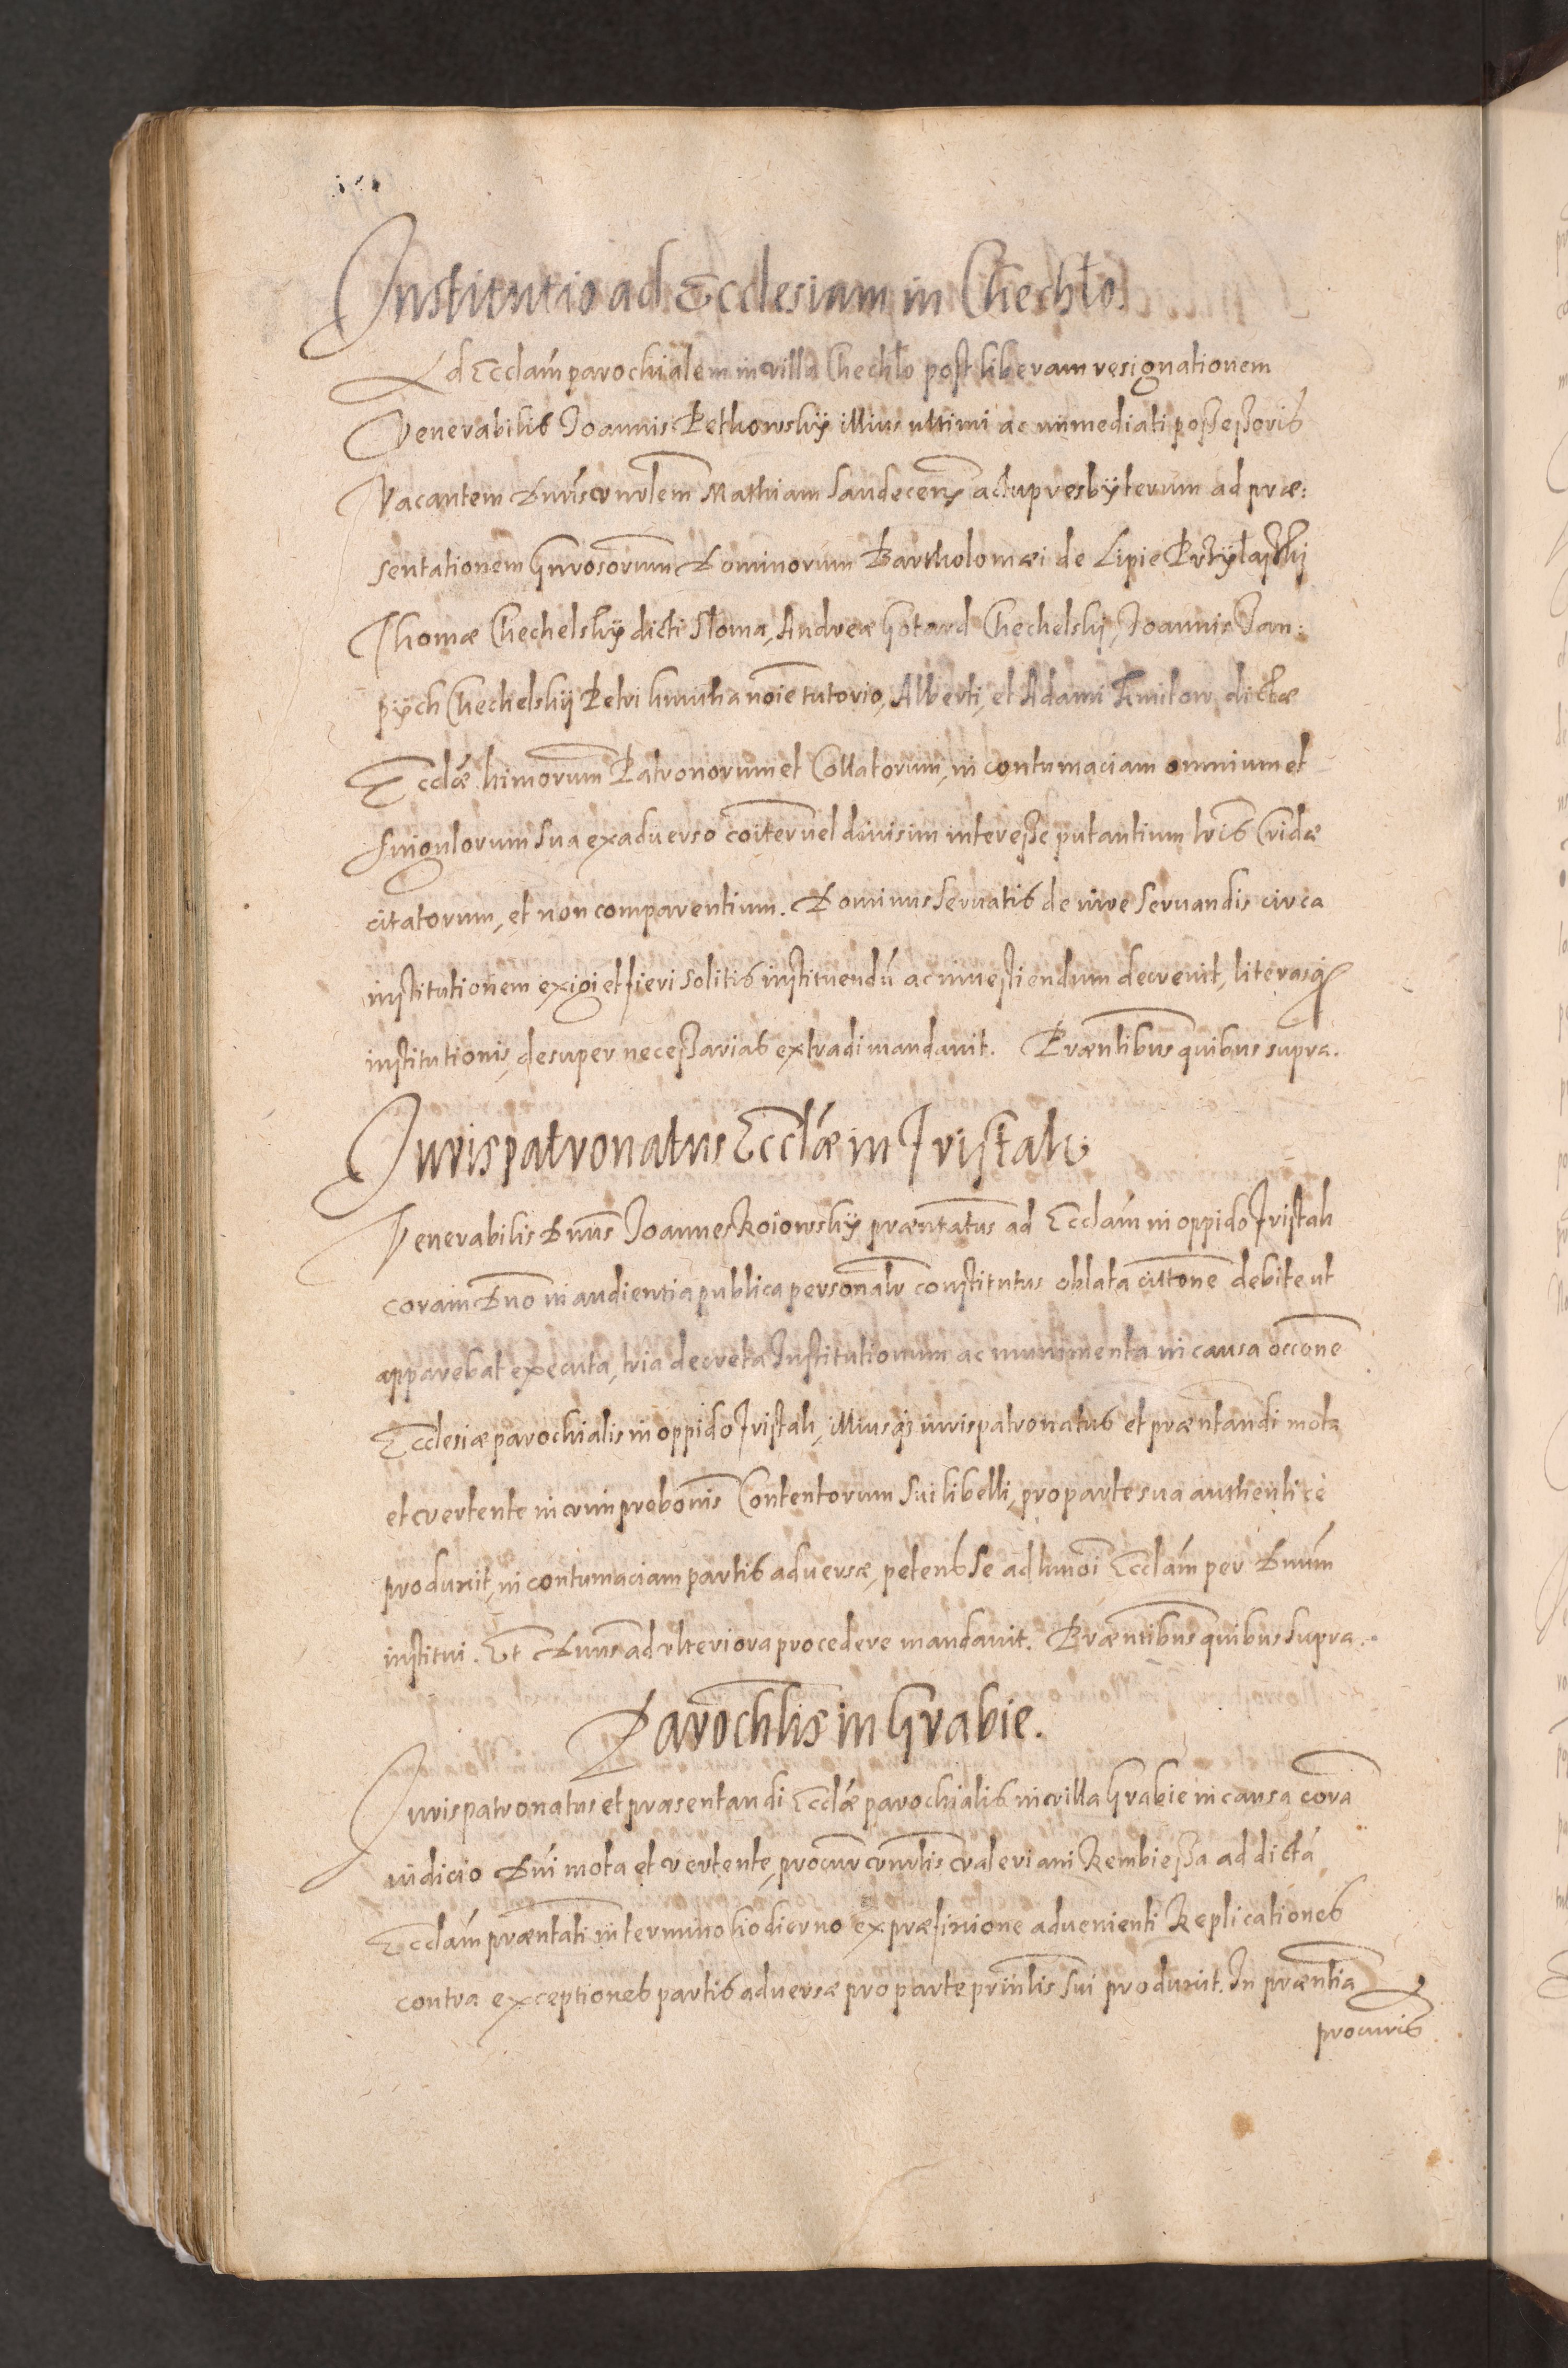 Institutio ad Ecclesiam in Chechło.
Ad Ecclam parochialem in villa Chechło post liberam resignationem
Venerabilis Joannis Pethowskÿ illius ultimi ac immediati possessoris
Vacantem Dnus vnrlem Mathiam Sandecens actu presbÿterum ad præ:
sentationem Gnrosorum Dominorum Bartholomæi de Lipie
Thomæ Chechelskÿ dicti Słoma, Andreæ Gotard Chechelskj, Joannis Jan:
pÿch Chechelskÿ Petri kmitha noie tutorio, Alberti, et Adami Kmitow, dictæ
Ecclæ himorum Patronorum et Collatorum, in contumaciam omnium et
singulorum sua ex aduerso coiter uel diuisim interesse putantium lris Cridæ
citatorum, et non comparentium. Dominus seruatis de iure seruandis circa
institutionem exigi et fieri solitis instituendú ac inuestiendum decreuit, literasq
institutionis, desuper necessarias extradi mandauit. Præntibus quibus supra.
Jurispatronatus Ecclæ in Tristah
Venerabilis Dnus Joannes Koiowskÿ præntatus ad Ecclam in oppido Tristah
coram Dno in audientia publica personalr constitutus oblata cittone debite ut
apparebat executa, tria decreta Institutionum ac munimenta in causa occone
Ecclesiæ parochialis in oppido Tristah, illiusq iurispatronatus et præntandi mota
et vertente in vim probonis Contentorum sui libelli, pro parte sua authentice
produxit, in contumaciam partis aduersæ, petens se ad hmoi Ecclam per Dnum
institui. Et Dnus ad vlteriora procedere mandauit. Præntibus quibus supra.
Parochlis in Grabie.
Jurispatronatus et præsentandi Ecclæ parochialis in villa Grabie in causa cora
iudicio Dni mota et vertente, procurr vnrlis valeriani Rembiessa ad dictá
Ecclam præntati in termino hodierno ex præfinione aduenienti Replicationes
contra exceptiones partis aduersæ pro parte prinlis sui produxit. In præntia
procuris